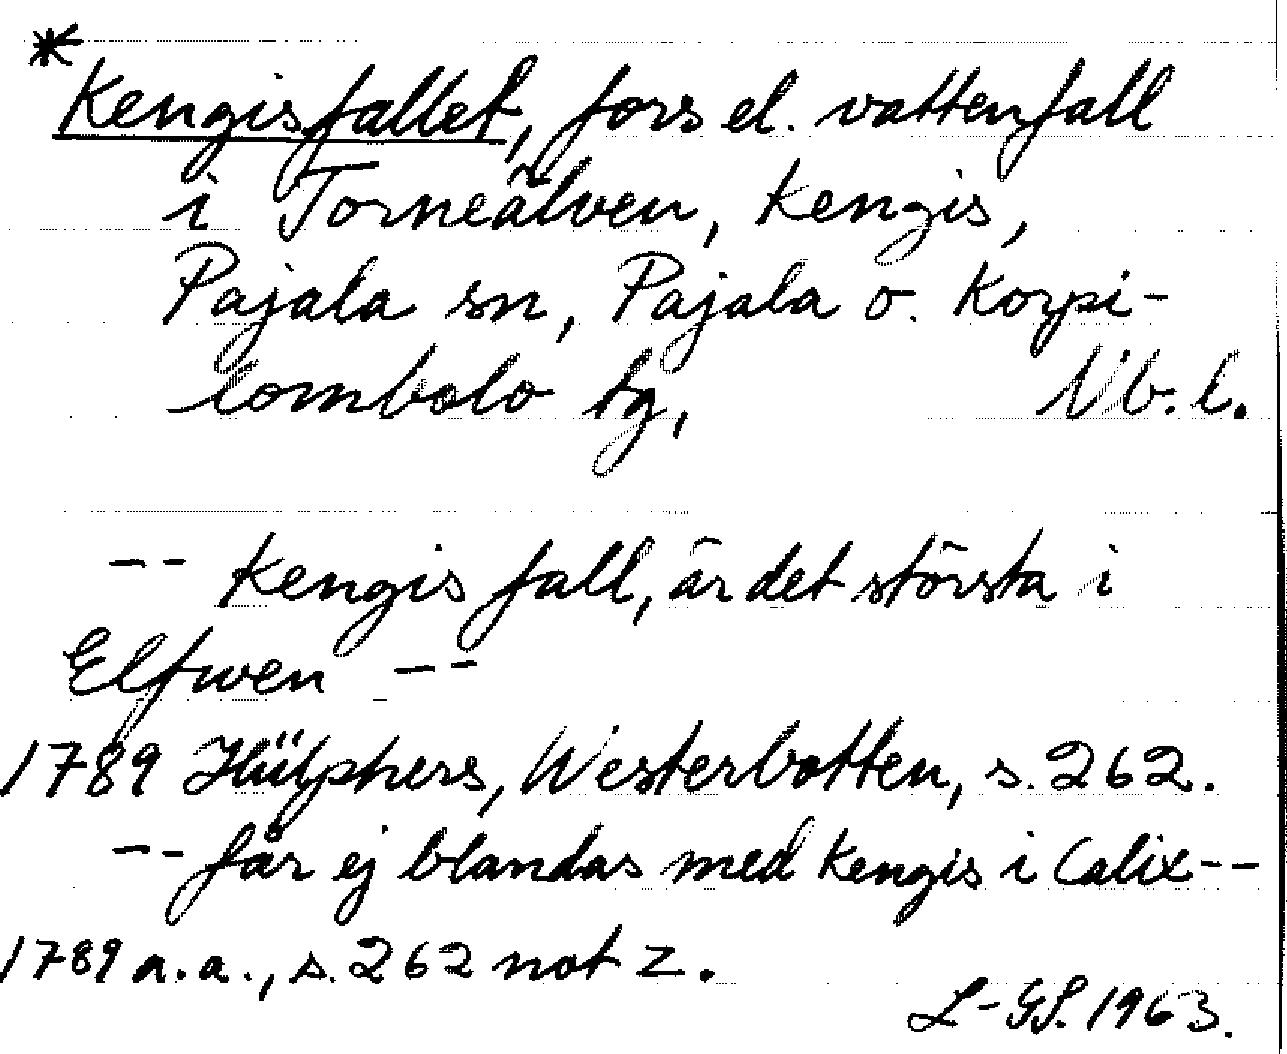 *
Kengisfallet, fors el. vattenfall
i Torneälven, Kengis,
Pajala sn, Pajala o. Korpi-
lombolo tg, Nb. l.
-- Kengis fall, är det största i
Elfwen --
1789 Hülphers, Westerbotten, s. 262.
-- får ej blandas med Kengis i Calix --
1789 a.a., s. 262 not z.
L-GS. 1963.